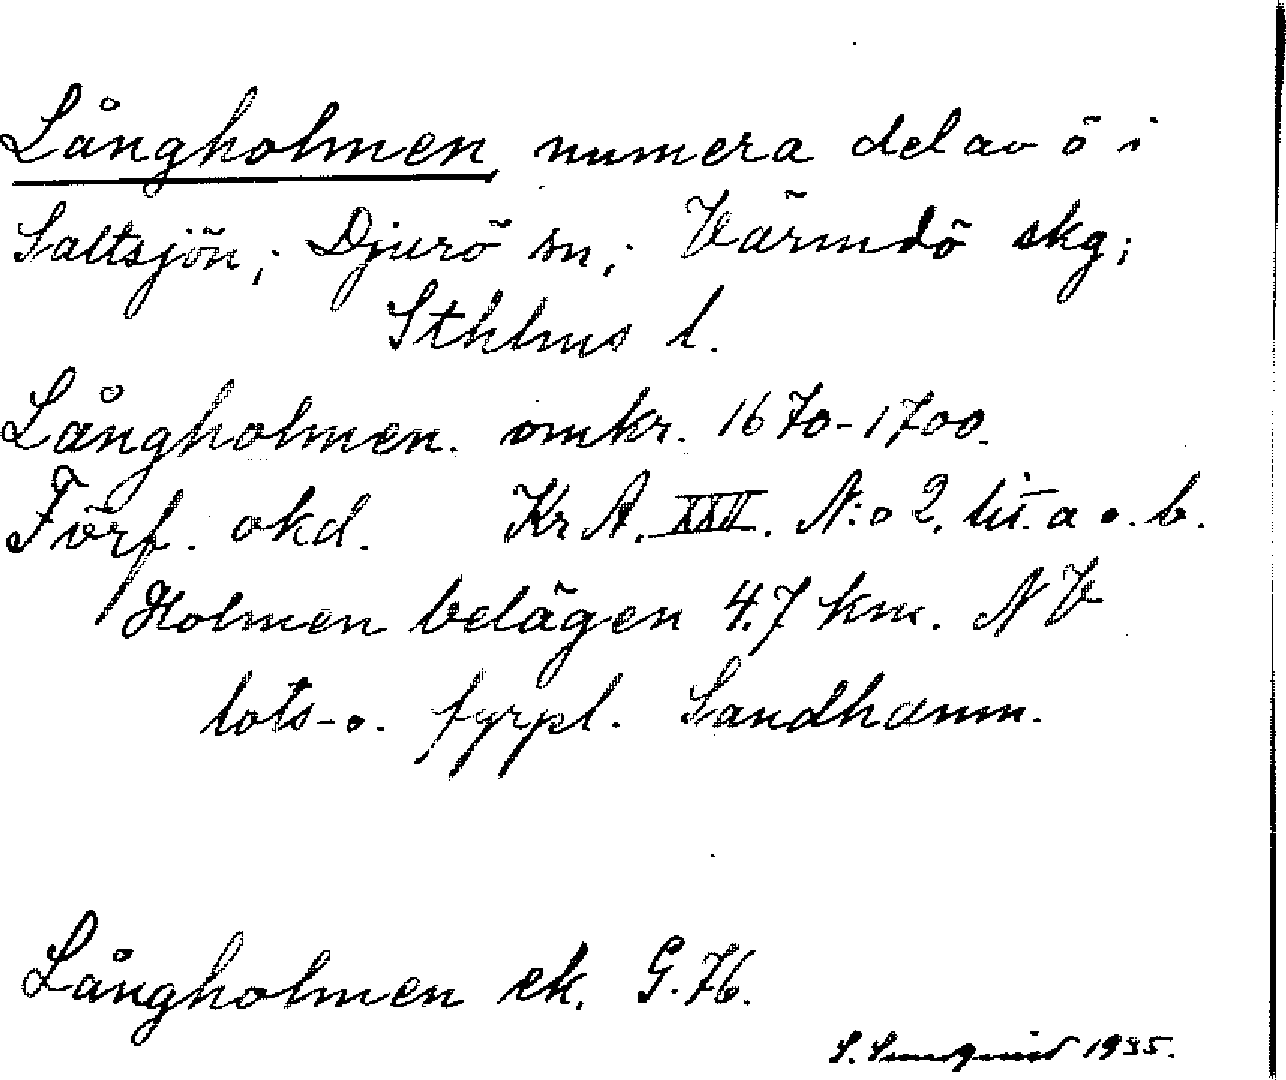 Långholmen numera del av ö i
Saltsjön; Djurö sn; Värmdö skg;
Sthlms l.
Långholmen. omkr. 1670-1700.
Förf. okd. Kr A. XXV. N:o 2. lit. a o. b.
Holmen belägen 4.7 km. NV
lots- o. fyrpl. Sandhamn.
Långholmen ek. G. 76.
S. 1935.